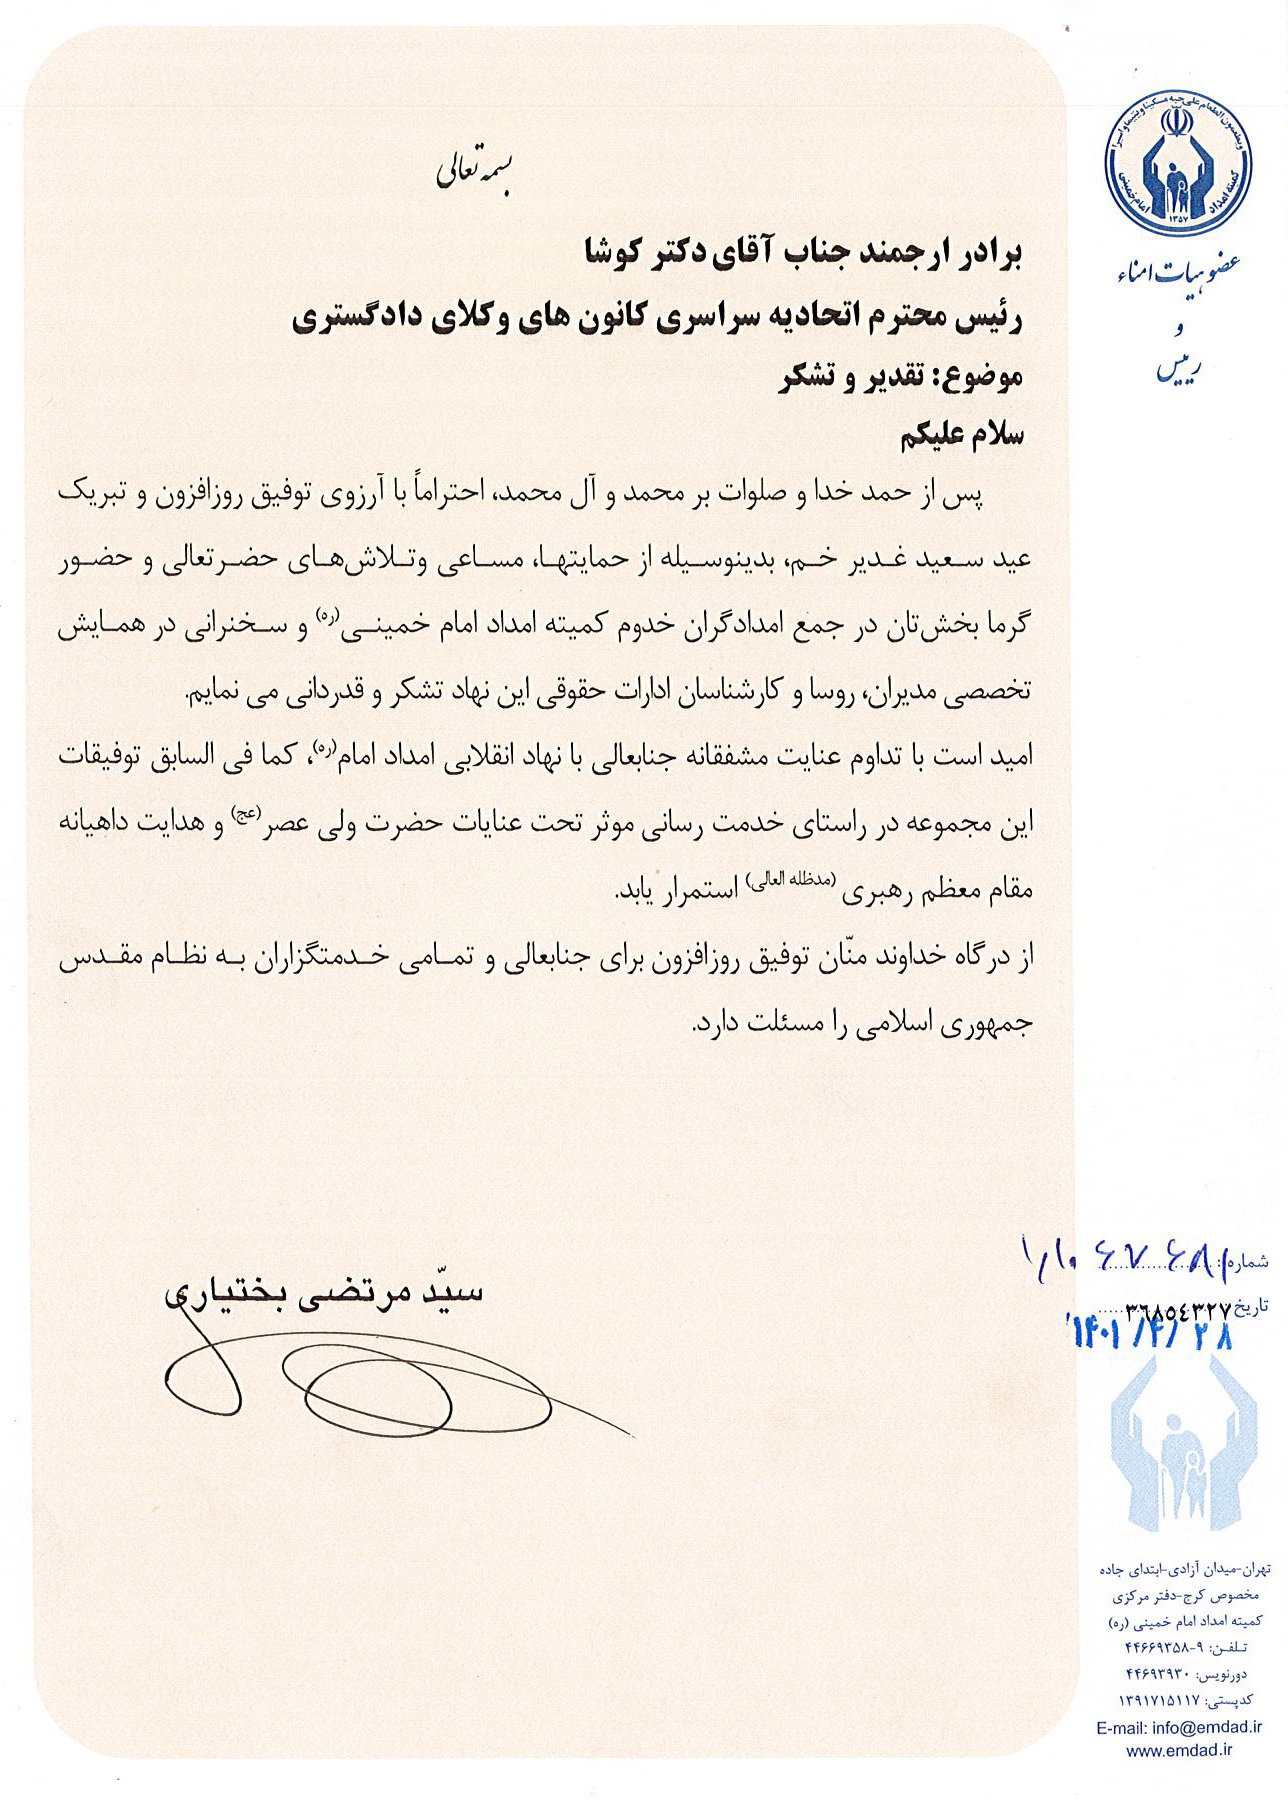 بسمه تعالی
برادر ارجمند جناب آقای دکتر کوشا
رئیس محترم اتحادیه سراسری کانون های وکلای دادگستری
موضوع: تقدیر و تشکر
سلام علیکم
پس از حمد خدا و صلوات بر محمد و آل محمد، احتراماً با آرزوی توفیق روزافزون و تبریک
عید سعید غدیر خم، بدینوسیله از حمایتها، مساعی وتلاش‌های حضرتعالی و حضور
گرما بخش‌تان در جمع امدادگران خدوم کمیته امداد امام خمینی(ره) و سخنرانی در همایش
تخصصی مدیران، روسا و کارشناسان ادارات حقوقی این نهاد تشکر و قدردانی می نمایم.
امید است با تداوم عنایت مشفقانه جنابعالی با نهاد انقلابی امداد امام(ره)، کما فی السابق توفیقات
این مجموعه در راستای خدمت رسانی موثر تحت عنایات حضرت ولی عصر(عج) و هدایت داهیانه
مقام معظم رهبری (مدظله العالی) استمرار یابد.
از درگاه خداوند منّان توفیق روزافزون برای جنابعالی و تمامی خدمتگزاران به نظام مقدس
جمهوری اسلامی را مسئلت دارد.
سیّد مرتضی بختیاری
ویطعمون الطعام علی حبه مسکینا ویتیما واسیرا
کمیته امداد امام خمینی
۱۳۵۷
عضو هیات امناء
و
رییس
شماره:
تاریخ: ۳۶۸۵۴۳۲۷
۱۴۰۱/۴/۲۸
تهران-میدان آزادی-ابتدای جاده
مخصوص کرج-دفتر مرکزی
کمیته امداد امام خمینی (ره)
تلفن: ۹-۴۴۶۶۹۳۵۸
دورنویس: ۴۴۶۹۳۹۳۰
کدپستی: ۱۳۹۱۷۱۵۱۱۷
E-mail: info@emdad.ir
www.emdad.ir